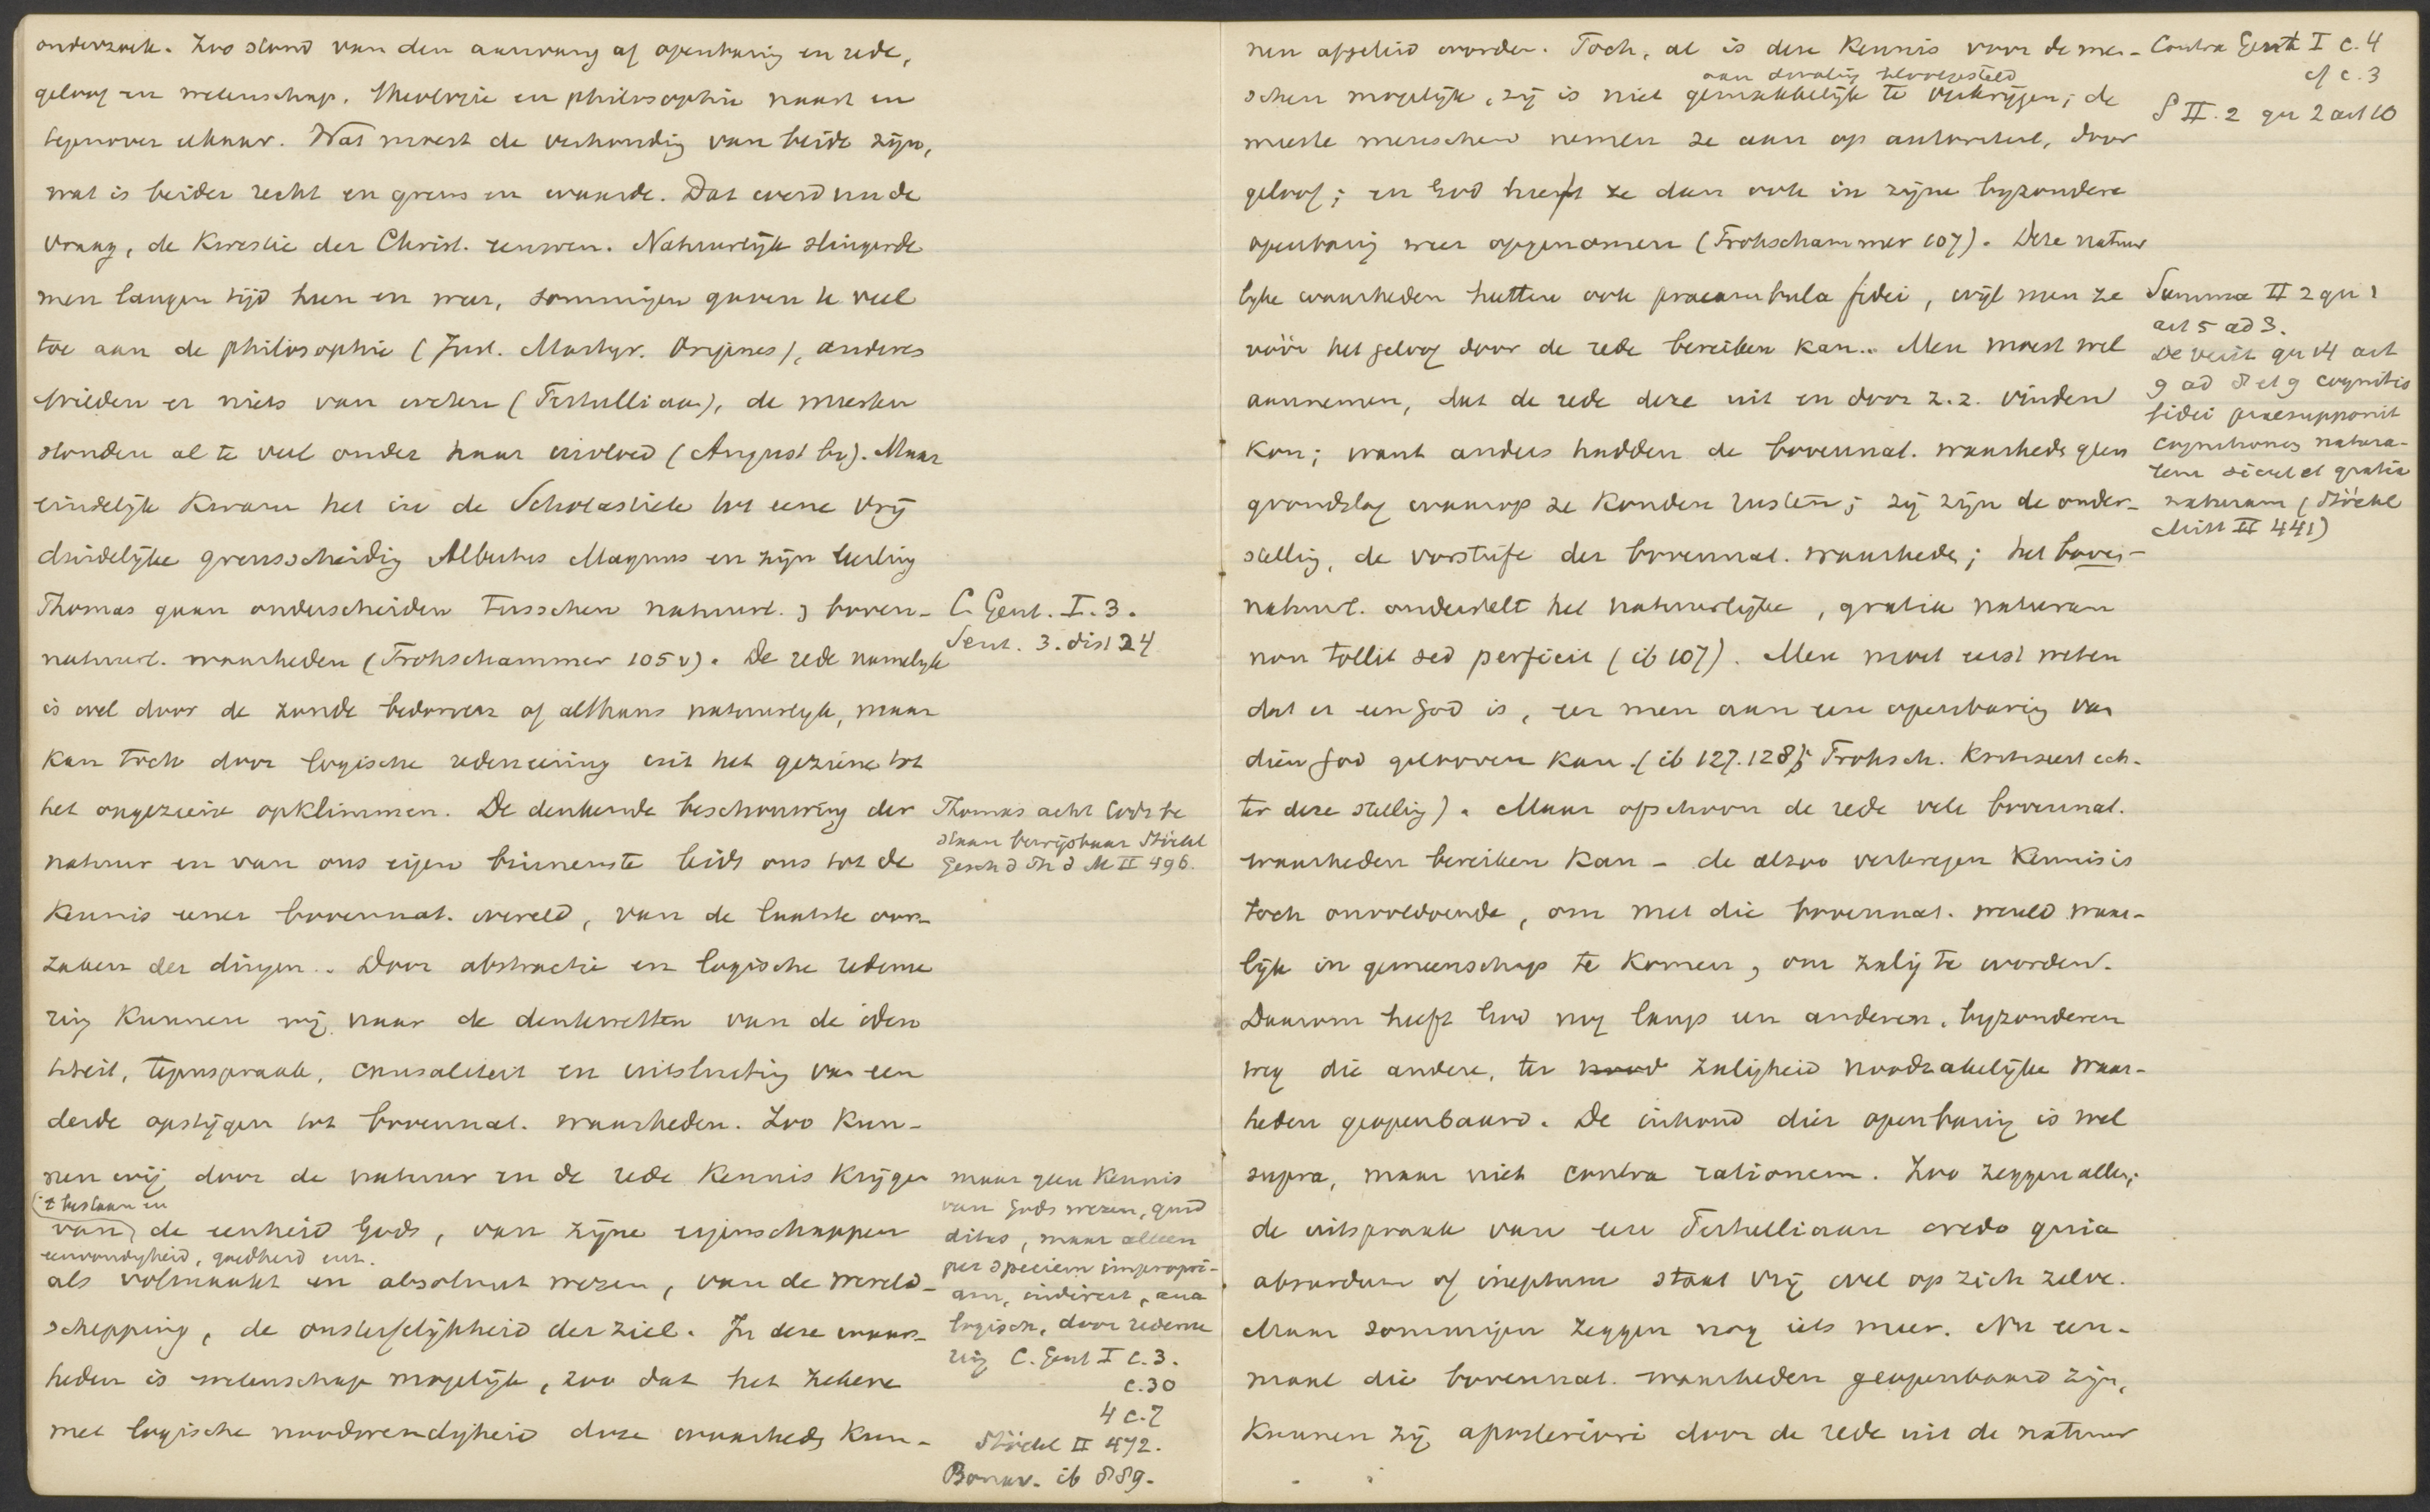 onderzoek. Zoo stond van den aanvang af openbaring en rede,
geloof en wetenschap, theologie en philosophie naast en
tegenover elkaar. Wat moest de verhouding van beide zijn,
wat is beider recht en grens en waarde. Dat werd nu de
vraag, de kwestie der Christ. eeuwen. Natuurlijk slingerde
men langen tijd heen en weer, sommigen gaven te veel
toe aan de philosophie (Just. Martyr. Origines), anderen
wilden er niets van weten (Tertulliaan), de meesten
stonden al te veel onder haar invloed (August bv). Maar
eindelijk kwam het in de Scholastiek tot eene vrij
duidelijke grensscheidig Albertus Magnus en zijn leerling
Thomas gaan onderscheiden tusschen natuurl. & boven-
natuurl. waarheden (Frohschammer 105 v). De rede namelijk
is wel door de zonde bedorven of althans natuurlijk, maar
kan toch door logische redeneering uit het geziene tot
het ongeziene opklimmen. De denkende beschouwing der
natuur en van ons eigen binnenste leidt ons tot de
kennis eener bovennat. wereld, van de laatste oor-
zaken der dingen. Door abstractie en logische redene
ring kunnen wij naar de denkwetten van de iden
titeit, tegenspraak, causaliteit en uitsluiting van een
derde opstijgen tot bovennat. waarheden. Zoo kun-
nen wij door de natuur en de rede kennis krijgen
't bestaan en
van de eenheid Gods, van zijne eigenschappen
eenvoudigheid, goedheid enz.
als volmaakt en absoluut wezen, van de wereld-
schepping, de onsterfelijkheid der ziel. In deze waar-
heden is wetenschap mogelijk, zoo dat het zekere
met logische noodwendigheid deze waarheden kun-
C. Gent. I. 3.
Sent. 3. dist 24
Thomas acht Gods be
staan bewijsbaar Stöckl
Gesch d Ph d M II 496.
maar geen kennis
van Gods wezen, quid
ditas, maar alleen
per speciem impropri-
am, indirect, ana
logisch, door redene
ring C. Gent I c. 3.
c. 30
4 c. 7
Stöckl II 472.
Bonav. ib 889.
nen afgeleid worden. Toch, al is deze kennis voor de men-
aan dwaling blootgesteld
schen mogelijk, zij is niet gemakkelijk te verkrijgen; de
meeste menschen nemen ze aan op autoriteit, door
geloof; en God heeft ze dan ook in zijne byzondere
openbaring weer opgenomen (Frohschammer 107). Deze natuur
lyke waarheden heetten ook praeambula fidei, wijl men ze
vóór het geloof door de rede bereiken kan. Men moest wel
aannemen, dat de rede deze uit en door z.z. vinden
kon; want anders hadden de bovennat. waarheden geen
grondslag waarop ze konden rusten; zij zijn de onder-
stelling, de vorstufe der bovennat. waarheden; het boven-
natuurl. onderstelt het natuurlijke, gratia naturam
non tollit sed perficit (ib 107). Men moet eerst weten
dat er een God is, eer men aan eene openbaring van
dien God gelooven kan. (ib 127. 128; Frohsch. kritiseert ech-
ter deze stelling). Maar ofschoon de rede vele bovennat.
waarheden bereiken kan - de alzoo verkregen kennis is
toch onvoldoende, om met die bovennat. wereld waar-
lijk in gemeenschap te komen, om zalig te worden.
Daarom heeft God nog langs een anderen, byzonderen
weg die andere, ter nood zaligheid noodzakelijke waar-
heden geopenbaard. De inhoud dier openbaring is wel
supra, maar niet contra rationem. Zoo zeggen allen;
de uitspraak van een Tertulliaan credo quia
absurdum of ineptum staat vrij wel op zich zelve.
Maar sommigen zeggen nog iets meer. Nu een-
maal die bovennat. waarheden geopenbaard zijn,
kunnen zij aposteriori door de rede uit de natuur
Contra Gent I c. 4
cf c. 3
S II. 2 qu 2 art 10
Summa II 2 qu 2
art 5 ad 3.
De verit qu 14 art
9 ad 8 et 9 cognitio
fidei praesupponit
cognitionem natura-
lem sicut et gratia
naturam (Stöckl
Mitt II 441)